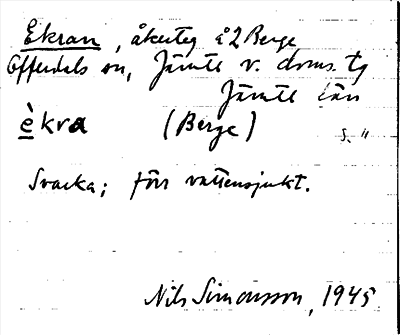 Ekran, åkerteg å 2 Berge
Offerdals sn, Jämtl v. doms. tg
Jämtl län
èkra (Berge) s. "
Svacka; förr vattensjukt.
Nils Simonsson, 1945